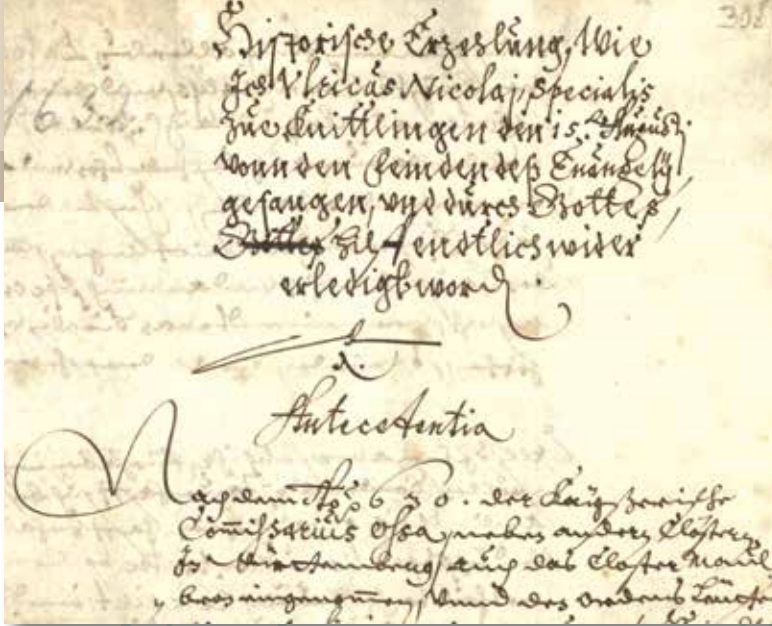 398
Historische Erzehlung, Wie
Ich Ulricus Nicolaj, Specialis
zue Knittlingen den 15. Augusti
vonn den Feinden deß Evangelij
gefangen, und durch Gottes
hilf endtlich wider
erledigt word
Antecedentia
Nachdem Ao 630. der Kayserische
Commißarius Ossa, neben andern Clöstern
In Württemberg, auch das Closter Maul
bron eingenommen, unnd des Ordens